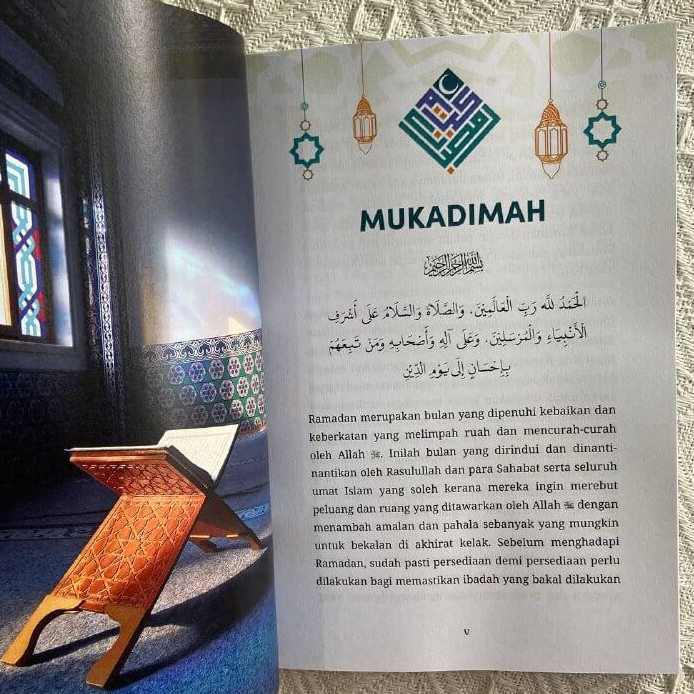 رمضان كريم
MUKADIMAH
بسم الله الرحمن الرحيم
الْحَمْدُ لِلَّه رَبِّ الْعَالَمِيْنَ. وَالصَّلَاةُ وَالسَّلَامُ عَلَى أَشْرَفِ
الْأَنْبِيَاءِ وَالْمُرْسَلِيْنَ. وَعَلَى آلِهِ وَأَصْحَابِهِ وَمَنْ تَبِعَهُمْ
بِإِحْسَانٍ إِلَى يَوْمِ الدِّيْنِ
Ramadan merupakan bulan yang dipenuhi kebaikan dan
keberkatan yang melimpah ruah dan mencurah-curah
oleh Allah ﷻ. Inilah bulan yang dirindui dan dinanti-
nantikan oleh Rasulullah dan para Sahabat serta seluruh
umat Islam yang soleh kerana mereka ingin merebut
peluang dan ruang yang ditawarkan oleh Allah ﷻ dengan
menambah amalan dan pahala sebanyak yang mungkin
untuk bekalan di akhirat kelak. Sebelum menghadapi
Ramadan, sudah pasti persediaan demi persediaan perlu
dilakukan bagi memastikan ibadah yang bakal dilakukan
V